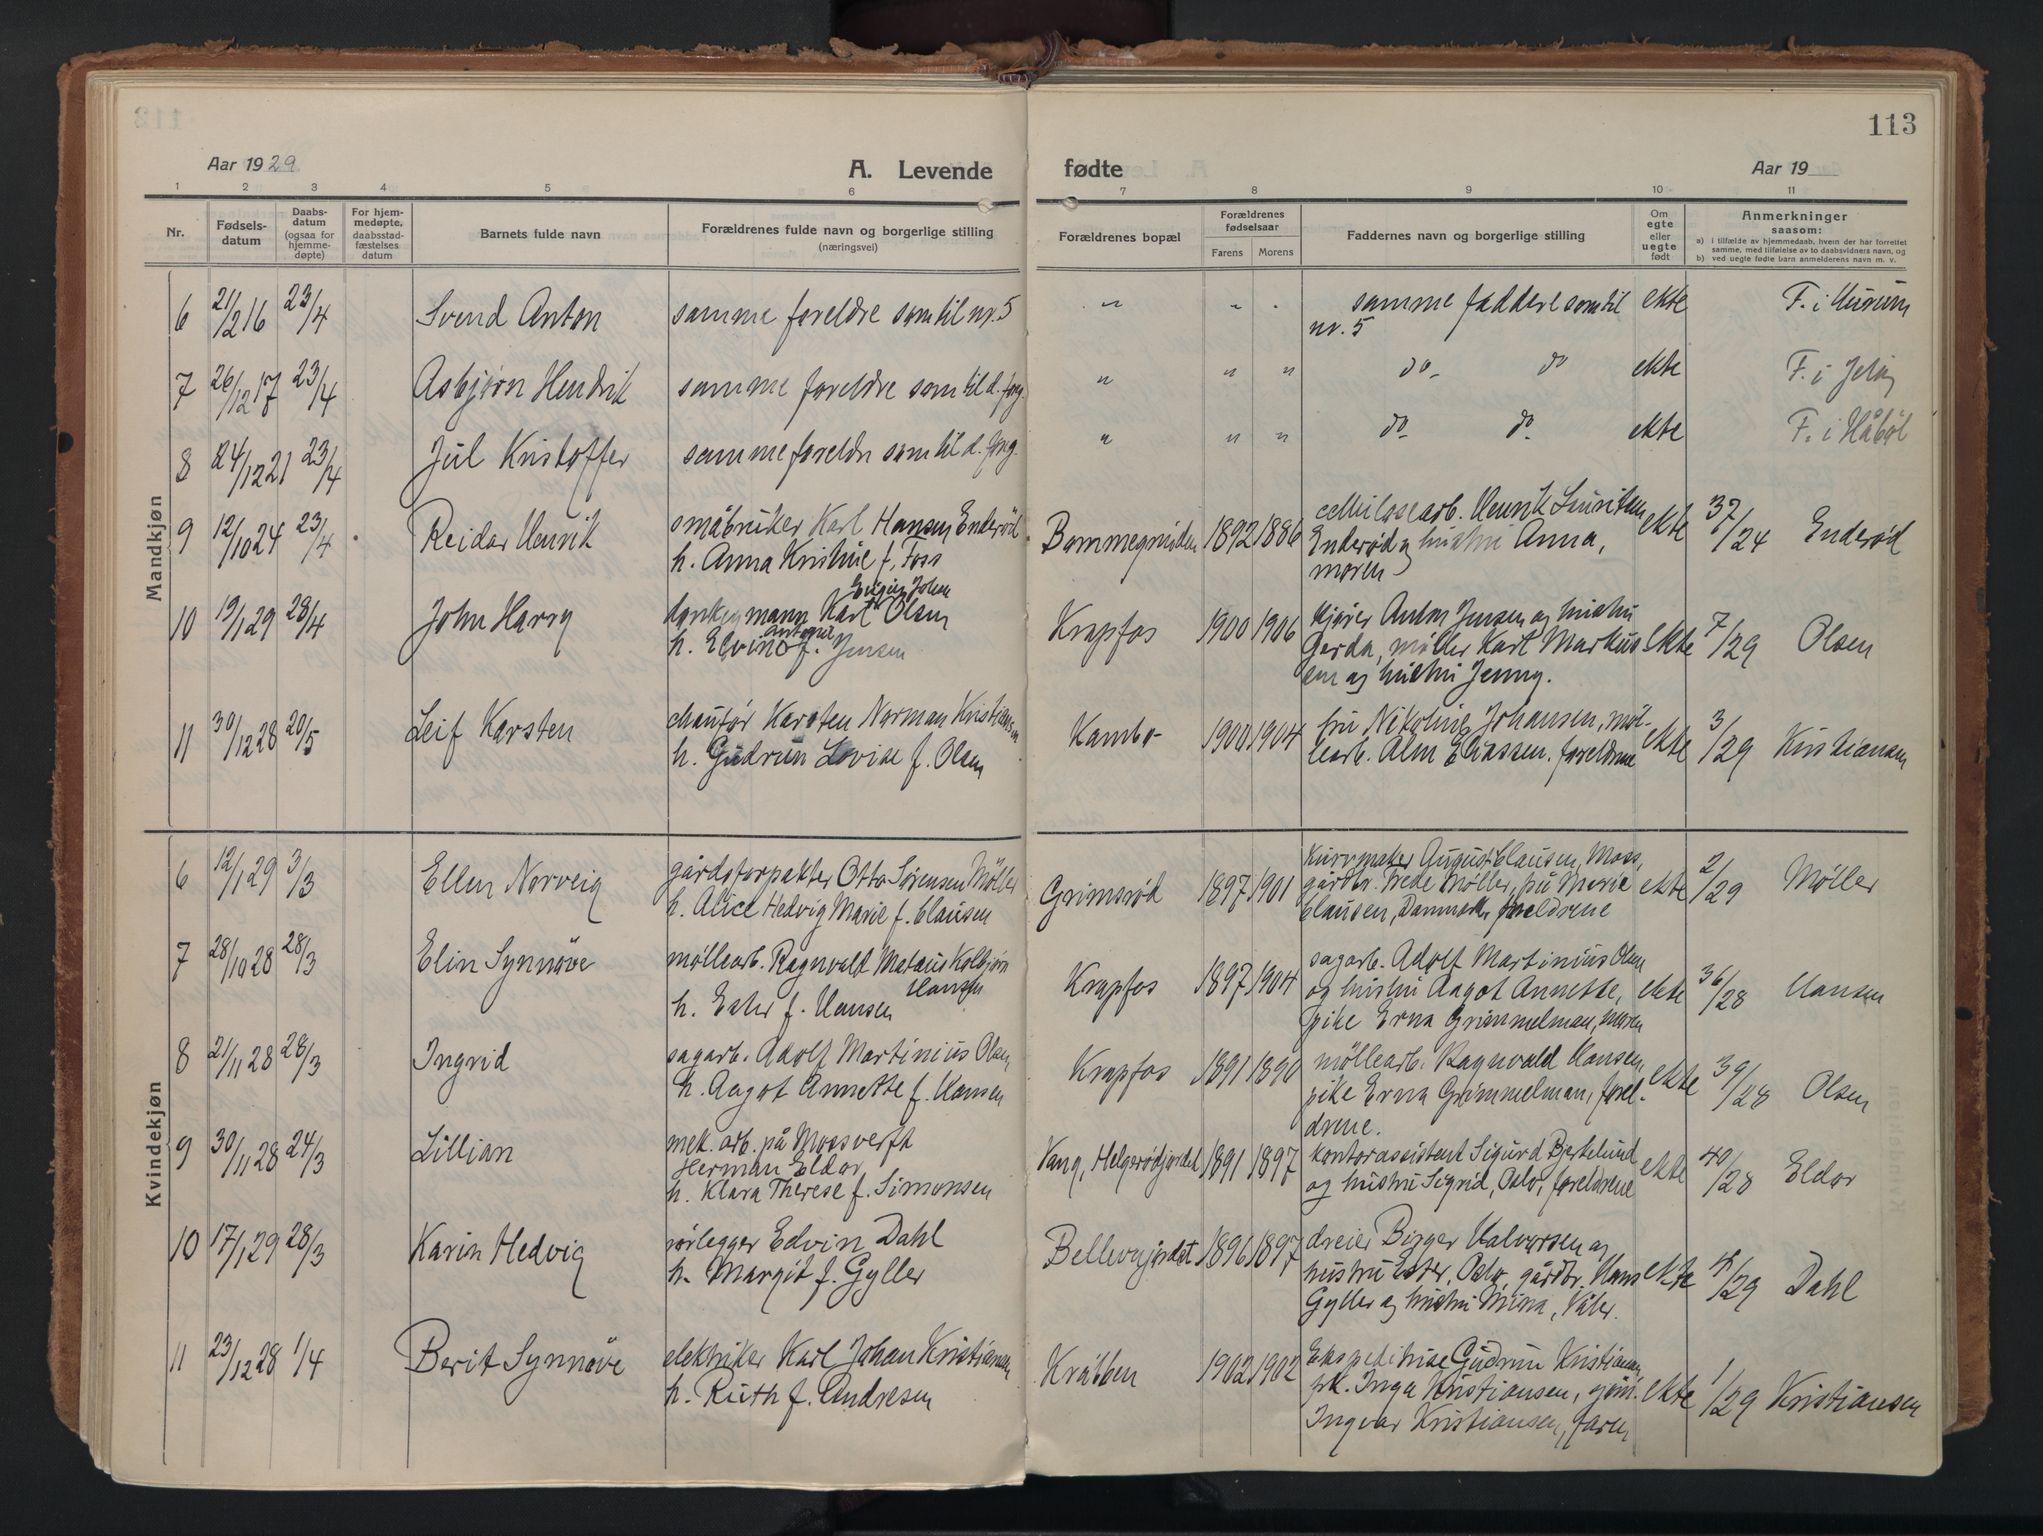 113
Aar 1929
A. Levende
fødte
Aar 19
1 2 3 4 5 6 7 8 9 10 11
Nr.
Fødsels-
datum
Daabs-
datum
(ogsaa for
hjemme-
døpte)
For hjem-
medøpte,
daabsstad-
fæstelses
datum
Barnets fulde navn
Forældrenes fulde navn og borgerlige stilling
(næringsvei)
Forældrenes bopæl
Forældrenes
fødselsaar
Farens Morens
Faddernes navn og borgerlige stilling
Om
egte
eller
uegte
født
Anmerkninger
saasom:
a) i tilfælde av hjemmedaab, hvem der har forrettet
samme, med tilføielse av to daabsvidners navn, og
b) ved uegte fødte barn anmelderens navn m. v.
Mandkjøn
6 21/2 16 23/4 Svend Anton samme foreldre som til nr. 5 " " " samme faddere som til ekte F. i Hurum
nr. 5
7 26/12 17 23/4 Asbjørn Hendrik samme foreldre som til d. forg. " " " do do ekte F. i Jeløy
8 24/12 21 23/4 Jul Kristoffer samme foreldre som til d. forg. " " " do do ekte F. i Håbøl
9 12/10 24 23/4 Reidar Henrik småbruker Karl Hansen Enderød Bommegrinden 1892 1886 cellulosearb. Henrik ekte 37/24 Enderød
h. Anna Kristine f. Foss Enderød og hustru Anna,
moren
10 19/1 29 28/4 John Harry donkeymann Karl Eugen Johan Olsen Krapfos 1900 1906 kjører Anton Jensen og hustru ekte 7/29 Olsen
h. Elvine Antonie f. Jensen Gerda, møller Karl Markus
sen og hustru Jenny.
11 30/12 28 20/5 Leif Karsten chaufør Karsten Norman Kristiansen Kambo 1900 1904 fru Nikoline Johansen, møl- ekte 3/29 Kristiansen
h. Gudrun Lovise f. Olsen learb. Alm Eliassen. foreldrene
Kvindekjøn
6 12/1 29 3/3 Ellen Norveig gårdsforpakter Otto Sørensen Møller Grimsrød 1897 1901 kurvmaker August Clausen, Moss, ekte 2/29 Møller
h. Alice Hedvig Marie f. Clausen gårdbr. Frede Møller, fru Marie
Clausen, Danmark, foreldrene
7 28/10 28 28/3 Elin Synnøve møllearb. Ragnvald Mataus Kolbjørn Hansen Krapfos 1897 1904 sagarb. Adolf Martinius Olsen ekte 36/28 Hansen
h. Ester f. Hansen og hustru Aagot Annette,
pike Erna Grimmelman, moren
8 21/11 28 28/3 Ingrid sagarb. Adolf Martinius Olsen, Krapfos 1891 1890 møllearb. Ragnvald Hansen, ekte 39/28 Olsen
h. Aagot Annette f. Hansen pike Erna Grimmelman, forel-
drene.
9 30/11 28 24/3 Lillian mek. arb. på Moss verft Vang, Helgerødjordet 1891 1897 kontorassistent Sigurd Bjertelund ekte 40/28 Eldor
Herman Eldor, og hustru Sigrid, Oslo, foreldrene
h. Klara Therese f. Simonsen
10 17/1 29 28/3 Karin Hedvig rørlegger Edvin Dahl Bellevujordet 1896 1897 dreier Birger Halvorsen og ekte 4/29 Dahl
h. Margit f. Gyller hustru Ester, Oslo, gårdbr. Hans
Gyller og hustru Mina, Våler.
11 23/12 28 1/4 Berit Synnøve elektriker Karl Johan Kristiansen Kråkben 1902 1902 Ekspeditrise Gudrun Kristiansen ekte 1/29 Kristiansen
h. Ruth f. Andresen pk. Inga Kristiansen,
Ingvar Kristiansen, faren